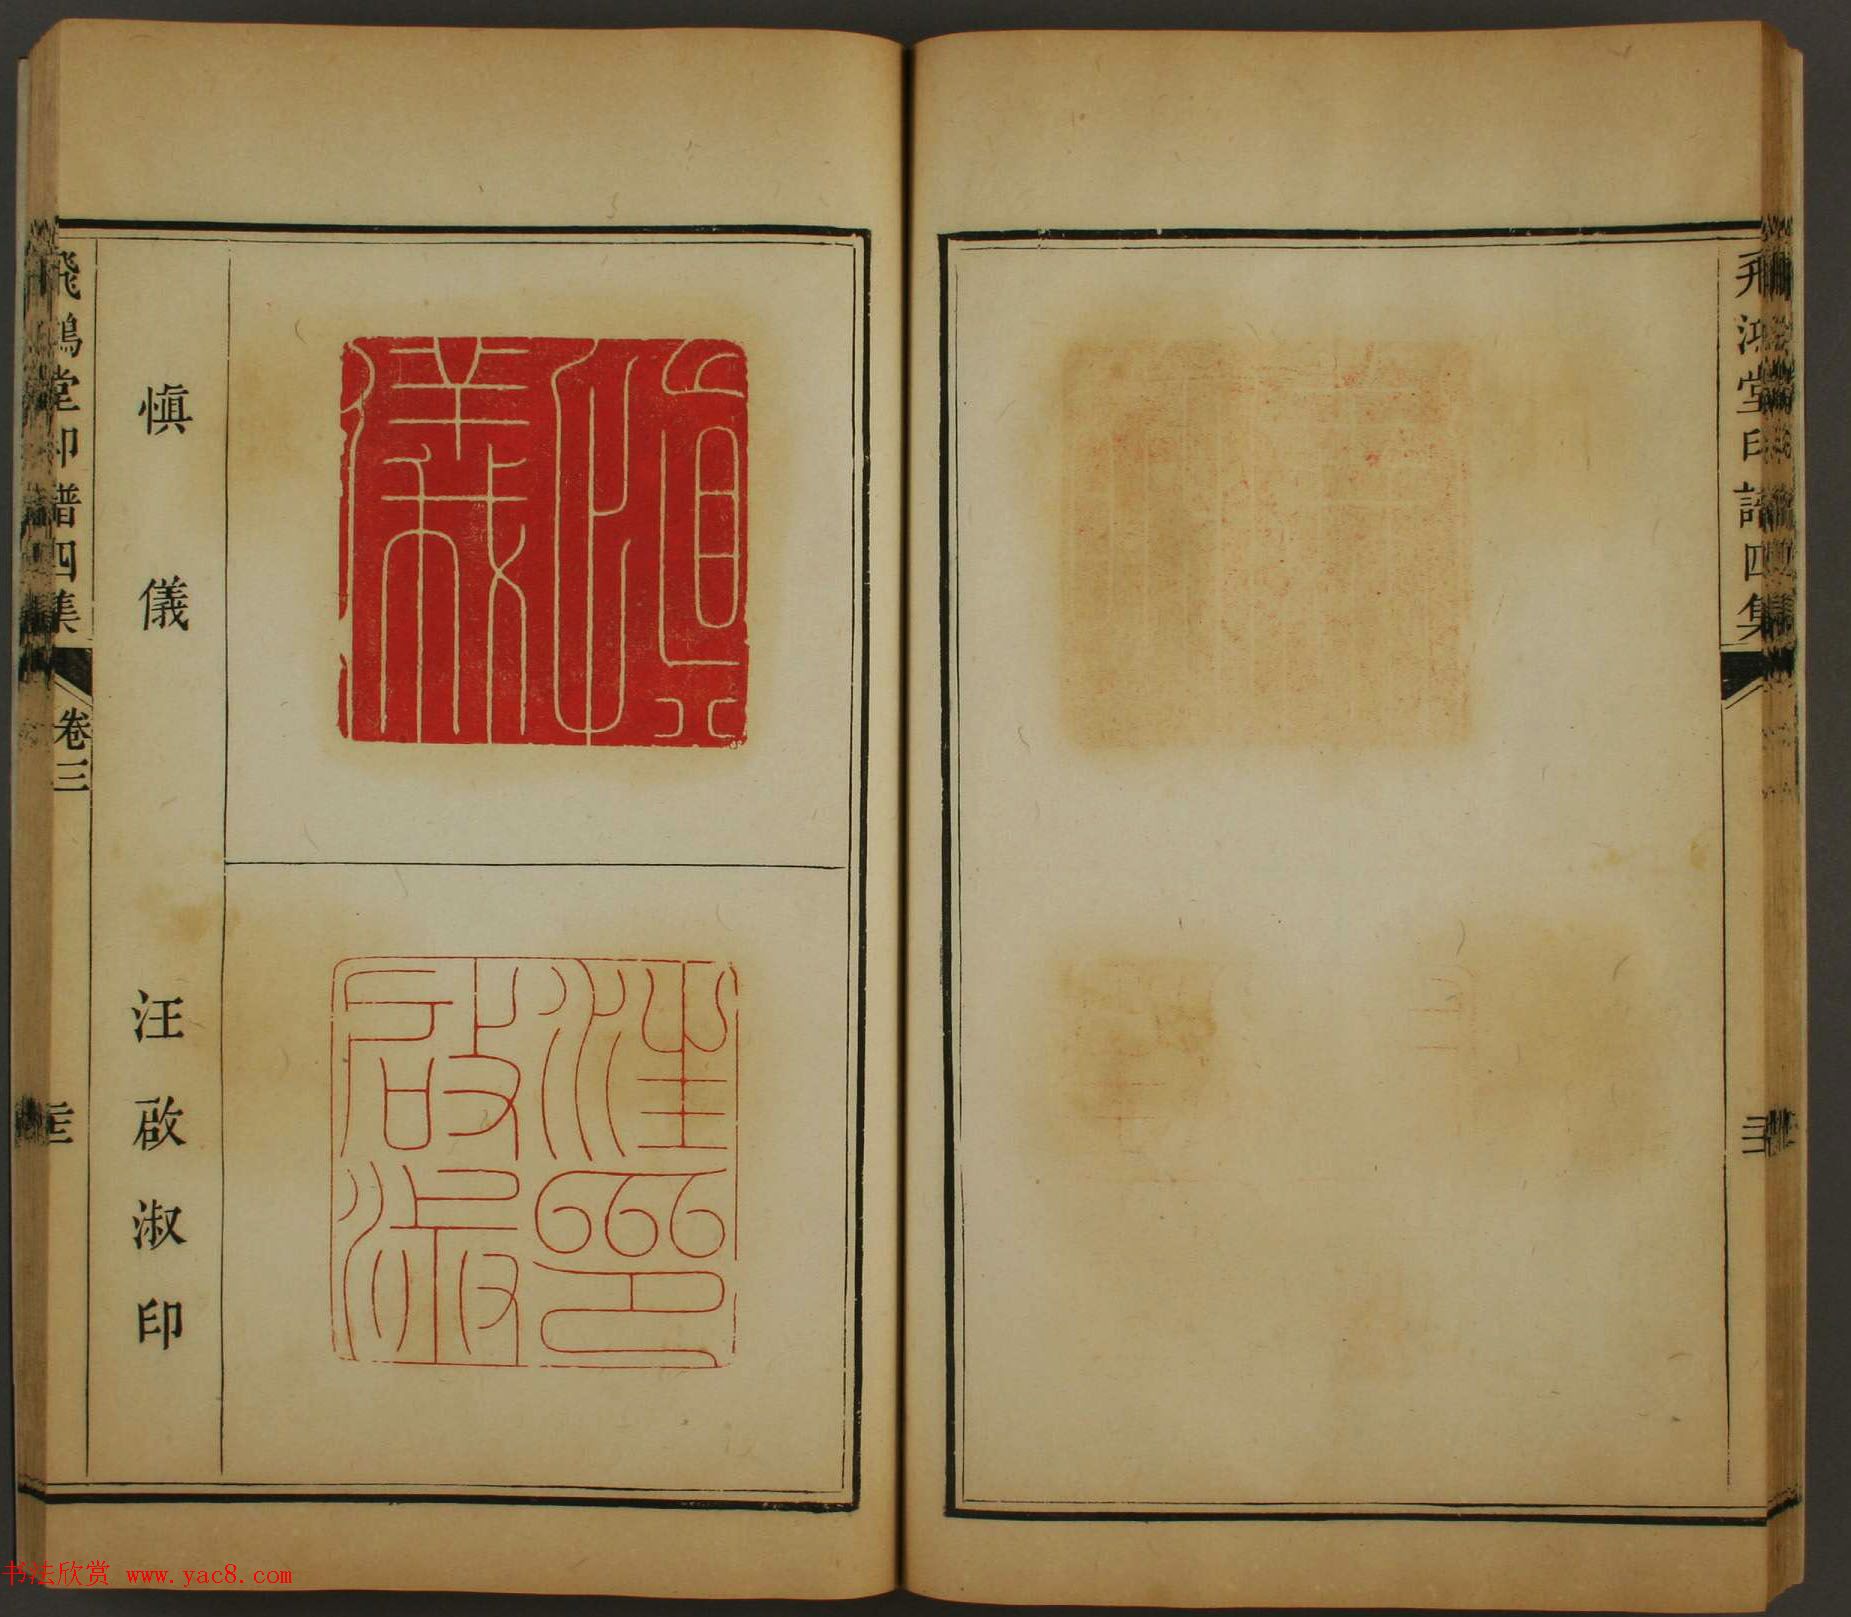 飛鴻堂印譜四集
慎儀
汪啟淑印
飛鴻堂印譜四集
卷三
书法欣赏 www.yac8.com